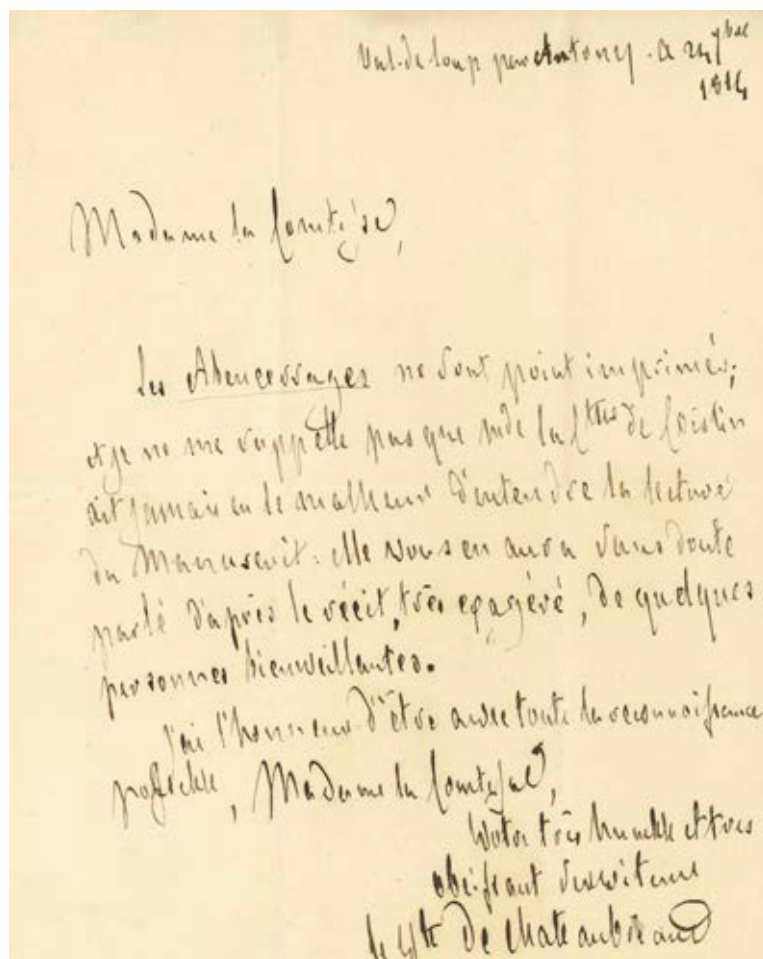 Val-de-loup par Antony - Ce 24 7bre
1814
Madame la Comtesse,
Les Abencerrages ne sont point imprimés;
et je ne me rappelle pas que mde la Ctesse de
ait jamais eu le malheur d'entendre la lecture
du Manuscrit: elle vous en aura sans doute
parlé d'après le récit, très exagéré, de quelques
personnes bienveillantes.
J'ai l'honneur d'être avec toute la reconnoissance
possible, Madame la Comtesse,
Votre très humble et très
obéissant serviteur
le Vte de Chateaubriand